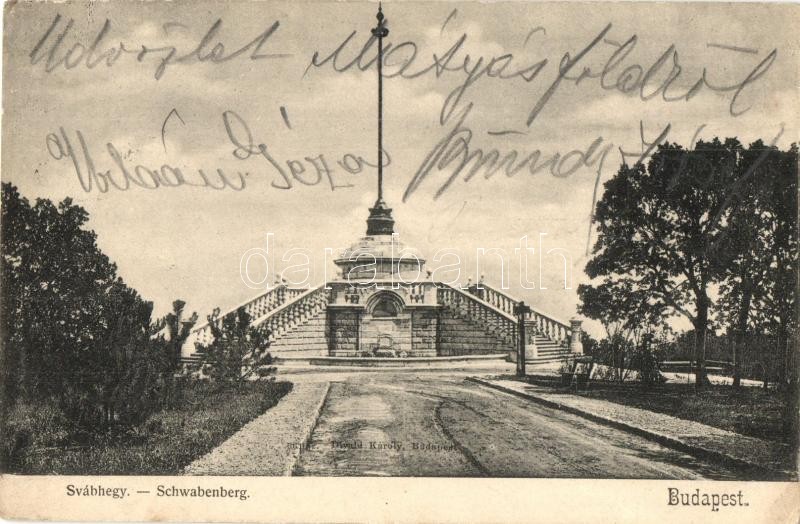 Üdvözlet Mátyásföldről
Urbán Géza Bründl
darabanth.com
Divald Károly, Budapest
Svábhegy. — Schwabenberg.
Budapest.